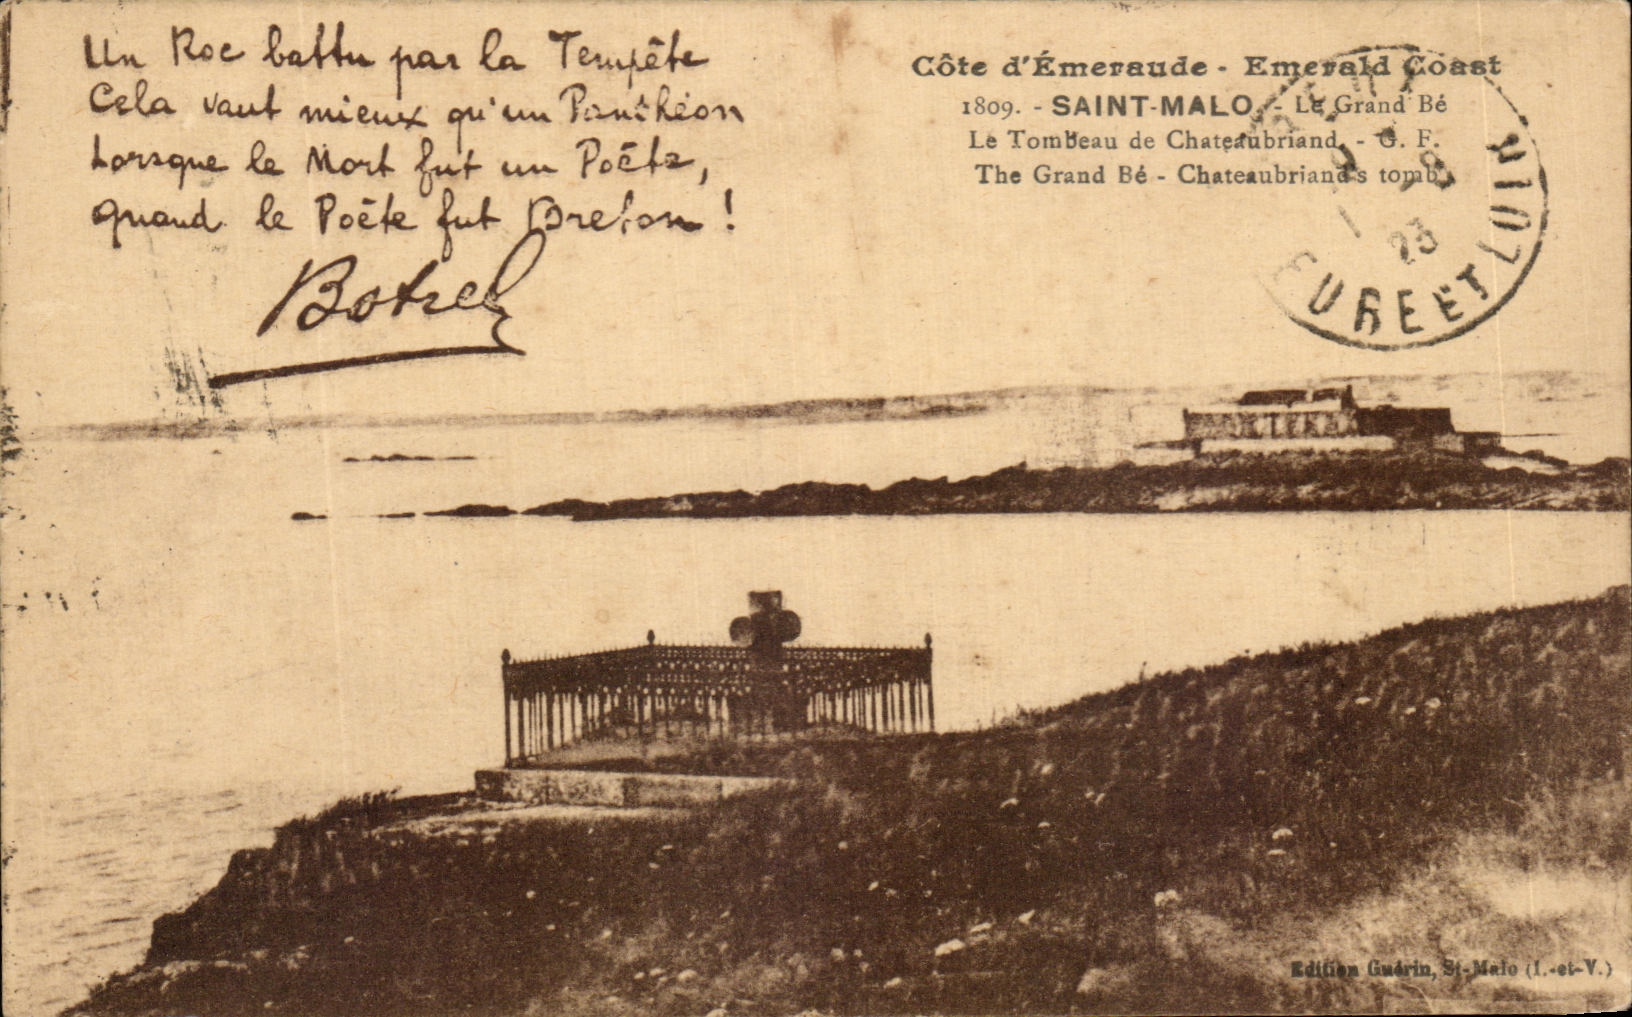 Un Roc battu par la Tempête
Cela vaut mieux qu'un Panthéon
Lorsque le Mort fut un Poëte,
quand le Poëte fut Breton !
Botrel
Côte d'Émeraude - Emerald Coast
1809. - SAINT-MALO. - Le Grand Bé
Le Tombeau de Chateaubriand. - G. F.
The Grand Bé - Chateaubriand's tomb.
23
EURE ET LOIR
Edition Guérin, St-Malo (I.-et-V.)